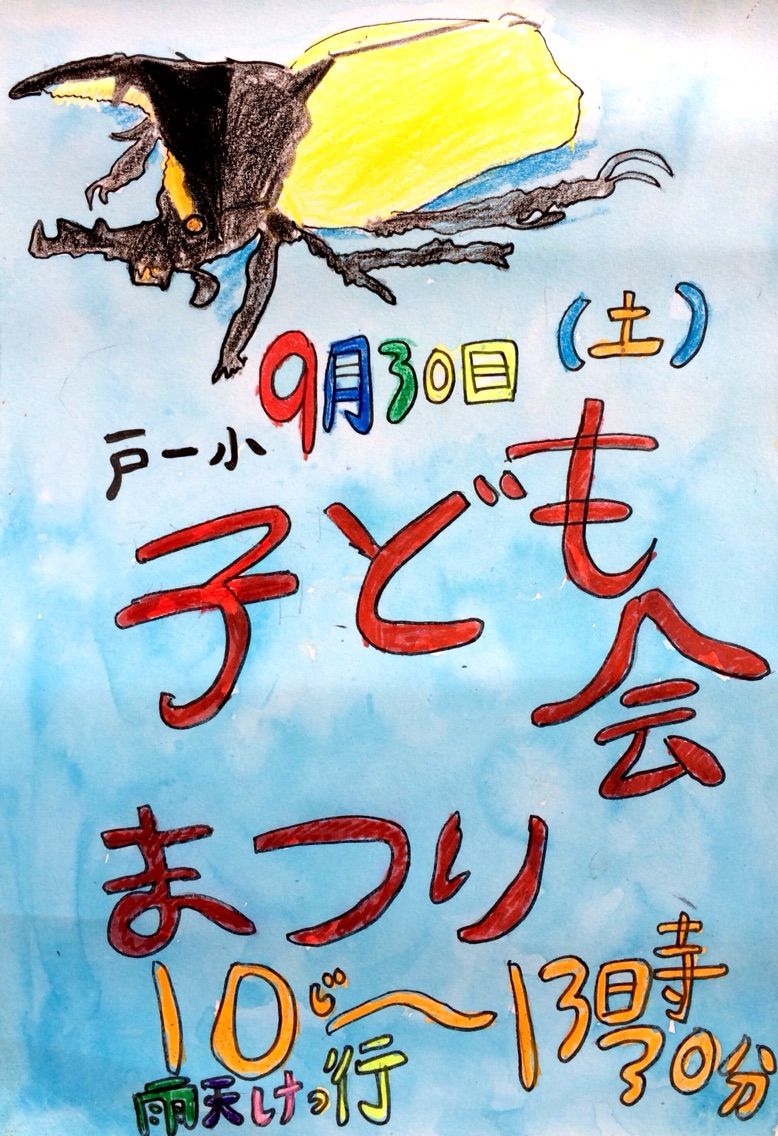 9月30日(土)
戸一小
子ども会
まつり
10じ〜13時30分
雨天けっ行